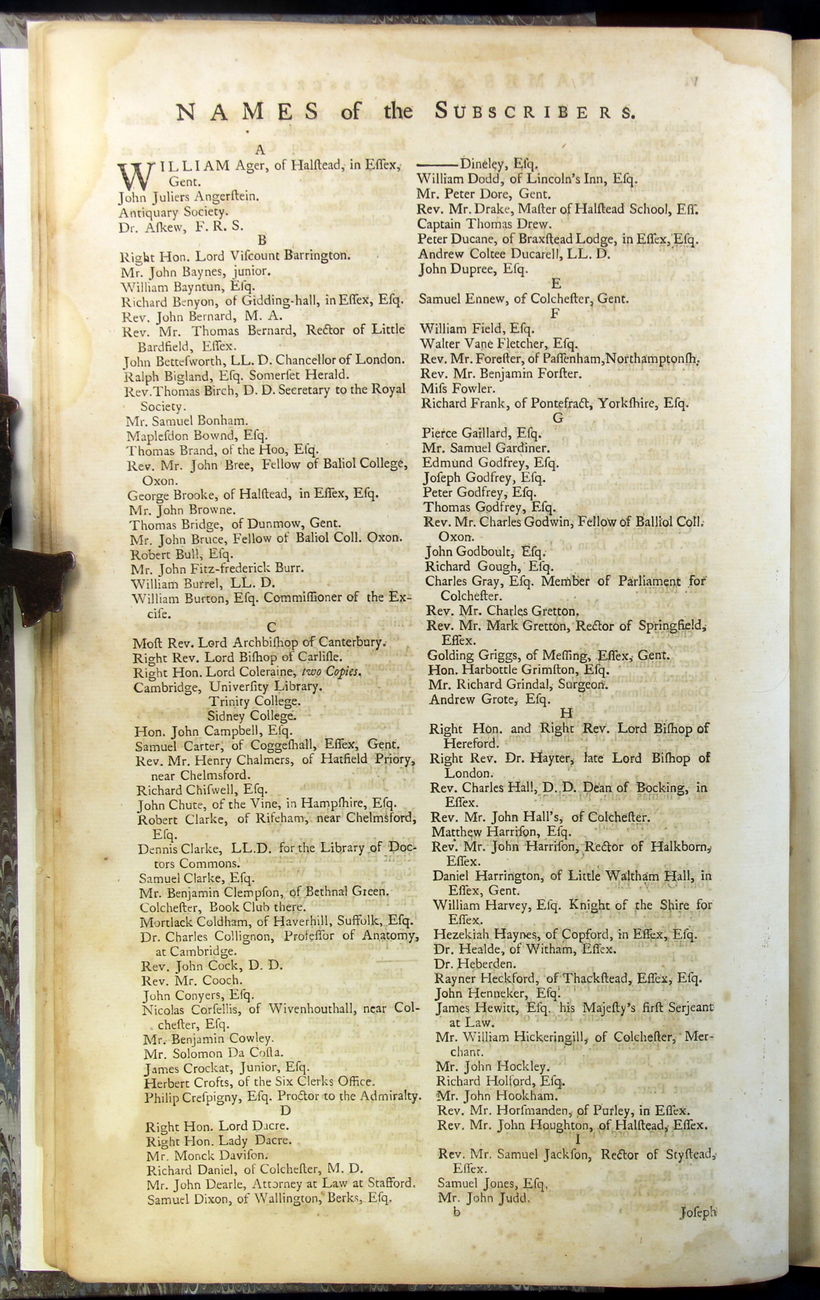 NAMES of the SUBSCRIBERS.
A
WILLIAM Ager, of Halſtead, in Eſſex,
Gent.
John Juliers Angerſtein.
Antiquary Society.
Dr. Aſkew, F. R. S.
B
Right Hon. Lord Viſcount Barrington.
Mr. John Baynes, junior.
William Bayntun, Eſq.
Richard Benyon, of Gidding-hall, in Eſſex, Eſq.
Rev. John Bernard, M. A.
Rev. Mr. Thomas Bernard, Rector of Little
Bardfield, Eſſex.
John Betteſworth, LL. D. Chancellor of London.
Ralph Bigland, Eſq. Somerſet Herald.
Rev. Thomas Birch, D. D. Secretary to the Royal
Society.
Mr. Samuel Bonham.
Mapleſdon Bownd, Eſq.
Thomas Brand, of the Hoo, Eſq.
Rev. Mr. John Bree, Fellow of Baliol College,
Oxon.
George Brooke, of Halſtead, in Eſſex, Eſq.
Mr. John Browne.
Thomas Bridge, of Dunmow, Gent.
Mr. John Bruce, Fellow of Baliol Coll. Oxon.
Robert Bull, Eſq.
Mr. John Fitz-frederick Burr.
William Burrel, LL. D.
William Burton, Eſq. Commiſſioner of the Ex-
ciſe.
C
Moſt Rev. Lord Archbiſhop of Canterbury.
Right Rev. Lord Biſhop of Carliſle.
Right Hon. Lord Coleraine, two Copies.
Cambridge, Univerſity Library.
Trinity College.
Sidney College.
Hon. John Campbell, Eſq.
Samuel Carter, of Coggeſhall, Eſſex, Gent.
Rev. Mr. Henry Chalmers, of Hatfield Priory,
near Chelmsford.
Richard Chiſwell, Eſq.
John Chute, of the Vine, in Hampſhire, Eſq.
Robert Clarke, of Rifeham, near Chelmsford,
Eſq.
Dennis Clarke, LL.D. for the Library of Doc-
tors Commons.
Samuel Clarke, Eſq.
Mr. Benjamin Clempſon, of Bethnal Green.
Colcheſter, Book Club there.
Mortlack Coldham, of Haverhill, Suffolk, Eſq.
Dr. Charles Collignon, Profeſſor of Anatomy,
at Cambridge.
Rev. John Cock, D. D.
Rev. Mr. Cooch.
John Conyers, Eſq.
Nicolas Corſellis, of Wivenhouthall, near Col-
cheſter, Eſq.
Mr. Benjamin Cowley.
Mr. Solomon Da Coſta.
James Crockat, Junior, Eſq.
Herbert Crofts, of the Six Clerks Office.
Philip Creſpigny, Eſq. Proctor to the Admiralty.
D
Right Hon. Lord Dacre.
Right Hon. Lady Dacre.
Mr. Monck Daviſon.
Richard Daniel, of Colcheſter, M. D.
Mr. John Dearle, Attorney at Law at Stafford.
Samuel Dixon, of Wallington, Berks, Eſq.
——Dineley, Eſq.
William Dodd, of Lincoln's Inn, Eſq.
Mr. Peter Dore, Gent.
Rev. Mr. Drake, Maſter of Halſtead School, Eſſ.
Captain Thomas Drew.
Peter Ducane, of Braxſtead Lodge, in Eſſex, Eſq.
Andrew Coltee Ducarell, LL. D.
John Dupree, Eſq.
E
Samuel Ennew, of Colcheſter, Gent.
F
William Field, Eſq.
Walter Vane Fletcher, Eſq.
Rev. Mr. Foreſter, of Paſſenham, Northamptonſh.
Rev. Mr. Benjamin Forſter.
Miſs Fowler.
Richard Frank, of Pontefract, Yorkſhire, Eſq.
G
Pierce Gaillard, Eſq.
Mr. Samuel Gardiner.
Edmund Godfrey, Eſq.
Joſeph Godfrey, Eſq.
Peter Godfrey, Eſq.
Thomas Godfrey, Eſq.
Rev. Mr. Charles Godwin, Fellow of Balliol Coll.
Oxon.
John Godboult, Eſq.
Richard Gough, Eſq.
Charles Gray, Eſq. Member of Parliament for
Colcheſter.
Rev. Mr. Charles Gretton.
Rev. Mr. Mark Gretton, Rector of Springfield,
Eſſex.
Golding Griggs, of Meſſing, Eſſex, Gent.
Hon. Harbottle Grimſton, Eſq.
Mr. Richard Grindal, Surgeon.
Andrew Grote, Eſq.
H
Right Hon. and Right Rev. Lord Biſhop of
Hereford.
Right Rev. Dr. Hayter, late Lord Biſhop of
London.
Rev. Charles Hall, D. D. Dean of Bocking, in
Eſſex.
Rev. Mr. John Hall's, of Colcheſter.
Matthew Harriſon, Eſq.
Rev. Mr. John Harriſon, Rector of Halkborn,
Eſſex.
Daniel Harrington, of Little Waltham Hall, in
Eſſex, Gent.
William Harvey, Eſq. Knight of the Shire for
Eſſex.
Hezekiah Haynes, of Copford, in Eſſex, Eſq.
Dr. Healde, of Witham, Eſſex.
Dr. Heberden.
Rayner Heckford, of Thackſtead, Eſſex, Eſq.
John Henneker, Eſq.
James Hewitt, Eſq. his Majeſty's firſt Serjeant
at Law.
Mr. William Hickeringill, of Colcheſter, Mer-
chant.
Mr. John Hockley.
Richard Holford, Eſq.
Mr. John Hookham.
Rev. Mr. Horſmanden, of Purley, in Eſſex.
Rev. Mr. John Houghton, of Halſtead, Eſſex.
I
Rev. Mr. Samuel Jackſon, Rector of Styſtead,
Eſſex.
Samuel Jones, Eſq.
Mr. John Judd.
b Joſeph